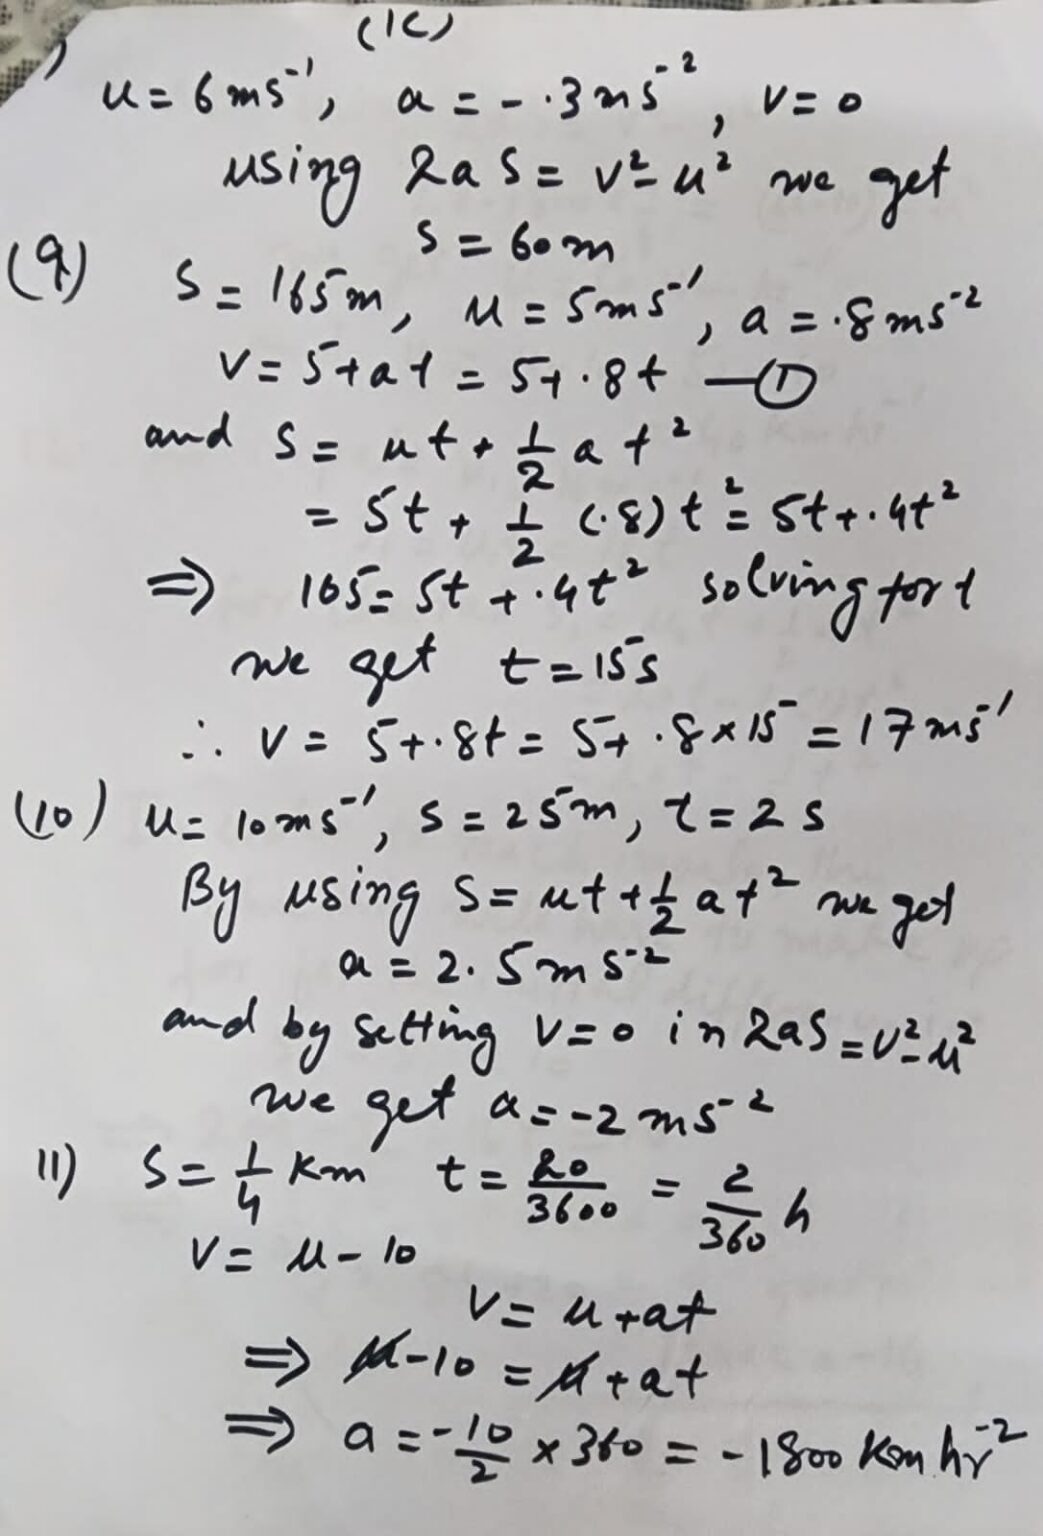 (1C)
)
u = 6 ms⁻¹, a = - .3 ms⁻², v = 0
using 2aS = v² - u² we get
S = 60 m
(9) S = 165 m, u = 5 ms⁻¹, a = .8 ms⁻²
v = 5 + at = 5 + .8t —①
and S = ut + 1/2 at²
= 5t + 1/2 (.8) t² = 5t + .4t²
⇒ 165 = 5t + .4t² solving for t
we get t = 15 s
∴ v = 5 + .8t = 5 + .8 × 15 = 17 ms⁻¹
(10) u = 10 ms⁻¹, S = 25 m, t = 2 s
By using S = ut + 1/2 at² we get
a = 2.5 m s⁻²
and by setting v = 0 in 2aS = v² - u²
we get a = -2 ms⁻²
11) S = 1/4 Km t = 20/3600 = 2/360 h
v = u - 10
v = u + at
⇒ u - 10 = u + at
⇒ a = - 10/2 × 360 = - 1800 Km hr⁻²